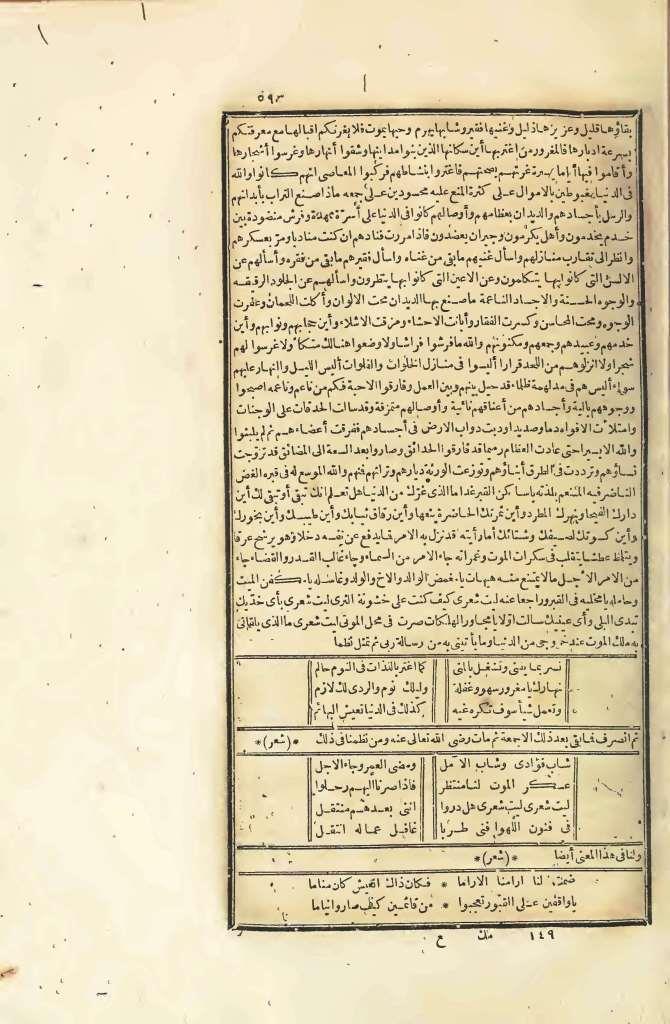 ٥٩٣
بقاؤها قليل وعزيزها ذليل وغنيها فقير وشابها يهرم وحيها يموت فلا يغرنكم اقبالها مع معرفتكم
بسرعة ادبارها فالمغرور من اغتر بها أين سكانها الذين بنوا مدائنها وشقوا أنهارها وغرسوا أشجارها
وأقاموا فيها أياما يسيرة غرتهم بصحتهم فاغتروا بنشاطهم فركبوا المعاصى انهم كانوا والله
فى الدنيا مغبوطين بالاموال على كثرة المنع عليه محسودين على جمعه ماذا صنع التراب بأبدانهم
والرمل بأجسادهم والديدان بعظامهم وأوصالهم كانوا فى الدنيا على أسرة ممهدة وفرش منضودة بين
خدم يخدمون وأهل يكرمون وجيران يعضدون فاذا مررت فنادهم ان كنت مناديا ومر بعسكرهم
وانظر الى تقارب منازلهم واسأل غنيهم مابقى من غناه واسأل فقيرهم مابقى من فقره واسألهم عن
الالسن التى كانوا بها يتكلمون وعن الاعين التى كانوا بها ينظرون واسألهم عن الجلود الرقيقة
والوجوه الحسنة والاجساد الناعمة ماصنع بها الديدان محت الالوان وأكلت اللحمان وعفرت
الوجوه ومحت المحاسن وكسرت الفقار وأبانت الاحشاء ومزقت الاشلاء وأين حجابهم ونوابهم وأين
خدمهم وعبيدهم وجمعهم ومكنونهم والله مافرشوا فراشا ولا وضعوا هنالك متكأ ولا غرسوا لهم
شجرا ولا أنزلوهم من اللحد قرارا أليسوا فى منازل الخلوات والفلوات أليس الليل والنهار عليهم
سواء أليس هم فى مدلهمة ظلماء قد حيل بينهم وبين العمل وفارقوا الاحبة فكم من ناعم وناعمة اصبحوا
ووجوههم بالية وأجسادهم من أعناقهم نائية وأوصالهم متمزقة وقد سالت الحدقات على الوجنات
وامتلأت الافواه دما وصديدا ودبت دواب الارض فى أجسادهم ففرقت أعضاءهم ثم لم يلبثوا
والله الايسيرا حتى عادت العظام رميما قد فارقوا الحدائق وصاروا بعد السعة الى المضائق قد تزوجت
نساؤهم وترددت فى الطرق أبناؤهم وتوزعت الورثة ديارهم وتراثهم فمنهم والله الموسع له فى قبره الغض
الناضر فيه المتنعم بلذته ياساكن القبر غدا ما الذى غرك من الدنيا هل تعلم انك تبقى أو تبقى لك أين
دارك الفيحاء ونهرك المطرد وأين ثمرتك الحاضرة ينعها وأين رقاق ثيابك وأين طيبك وأين بخورك
وأين كسوتك لصيفك وشتائك أما رأيته قد نزل به الامر فما يدفع عن نفسه دخلا وهو يرشح عرقا
ويتلمظ عطشا يتقلب فى سكرات الموت وغمراته جاء الامر من السماء وجاء غالب القدر والقضاء جاء
من الامر الاجل مالا يمتنع منه هيهات يا مغمض الوالد والاخ والولد وغاسله يا مكفن الميت
وحامله يا مخليه فى القبر وراجعا عنه ليت شعرى كيف كنت على خشونة الثرى ليت شعرى بأى خديك
تبدى البلى وأى عينيك سالت اولا يا مجاور الهلكات صرت فى محل الموتى ليت شعرى ما الذى يلقانى
به ملك الموت عند خروجى من الدنيا وما يأتينى به من رسالة ربى ثم تمثل نظما
تسر بما يفنى وتشغل بالمنى كما اغتر باللذات فى النوم حالم
نهارك يا مغرور سهو وغفلة وليلك نوم والردى لك لازم
وتعمل شيأ سوف تكره غبه كذلك فى الدنيا تعيش البهائم
ثم انصرف فما بقى بعد ذلك الاجمعة ثم مات رضى الله تعالى عنه ومن نظمنا فى ذلك *(شعر)*
شاب فؤادى وشاب الامل ومضى العمر وجاء الاجل
عسكر الموت لنا منتظر فاذا صرنا اليهم رحلوا
ليت شعرى ليت شعرى هل دروا اننى بعدهم منتقل
فى فنون اللهو افنى طربا غافل عما له انتقل
ولنا فى هذا المعنى أيضا *(شعر)*
ضمت لنا ارامنا الاراما * فكان ذاك العيش كان مناما
يا واقفين على القبور تعجبوا * من قائمين كيف صاروا نياما
١٤٩ ملك ع